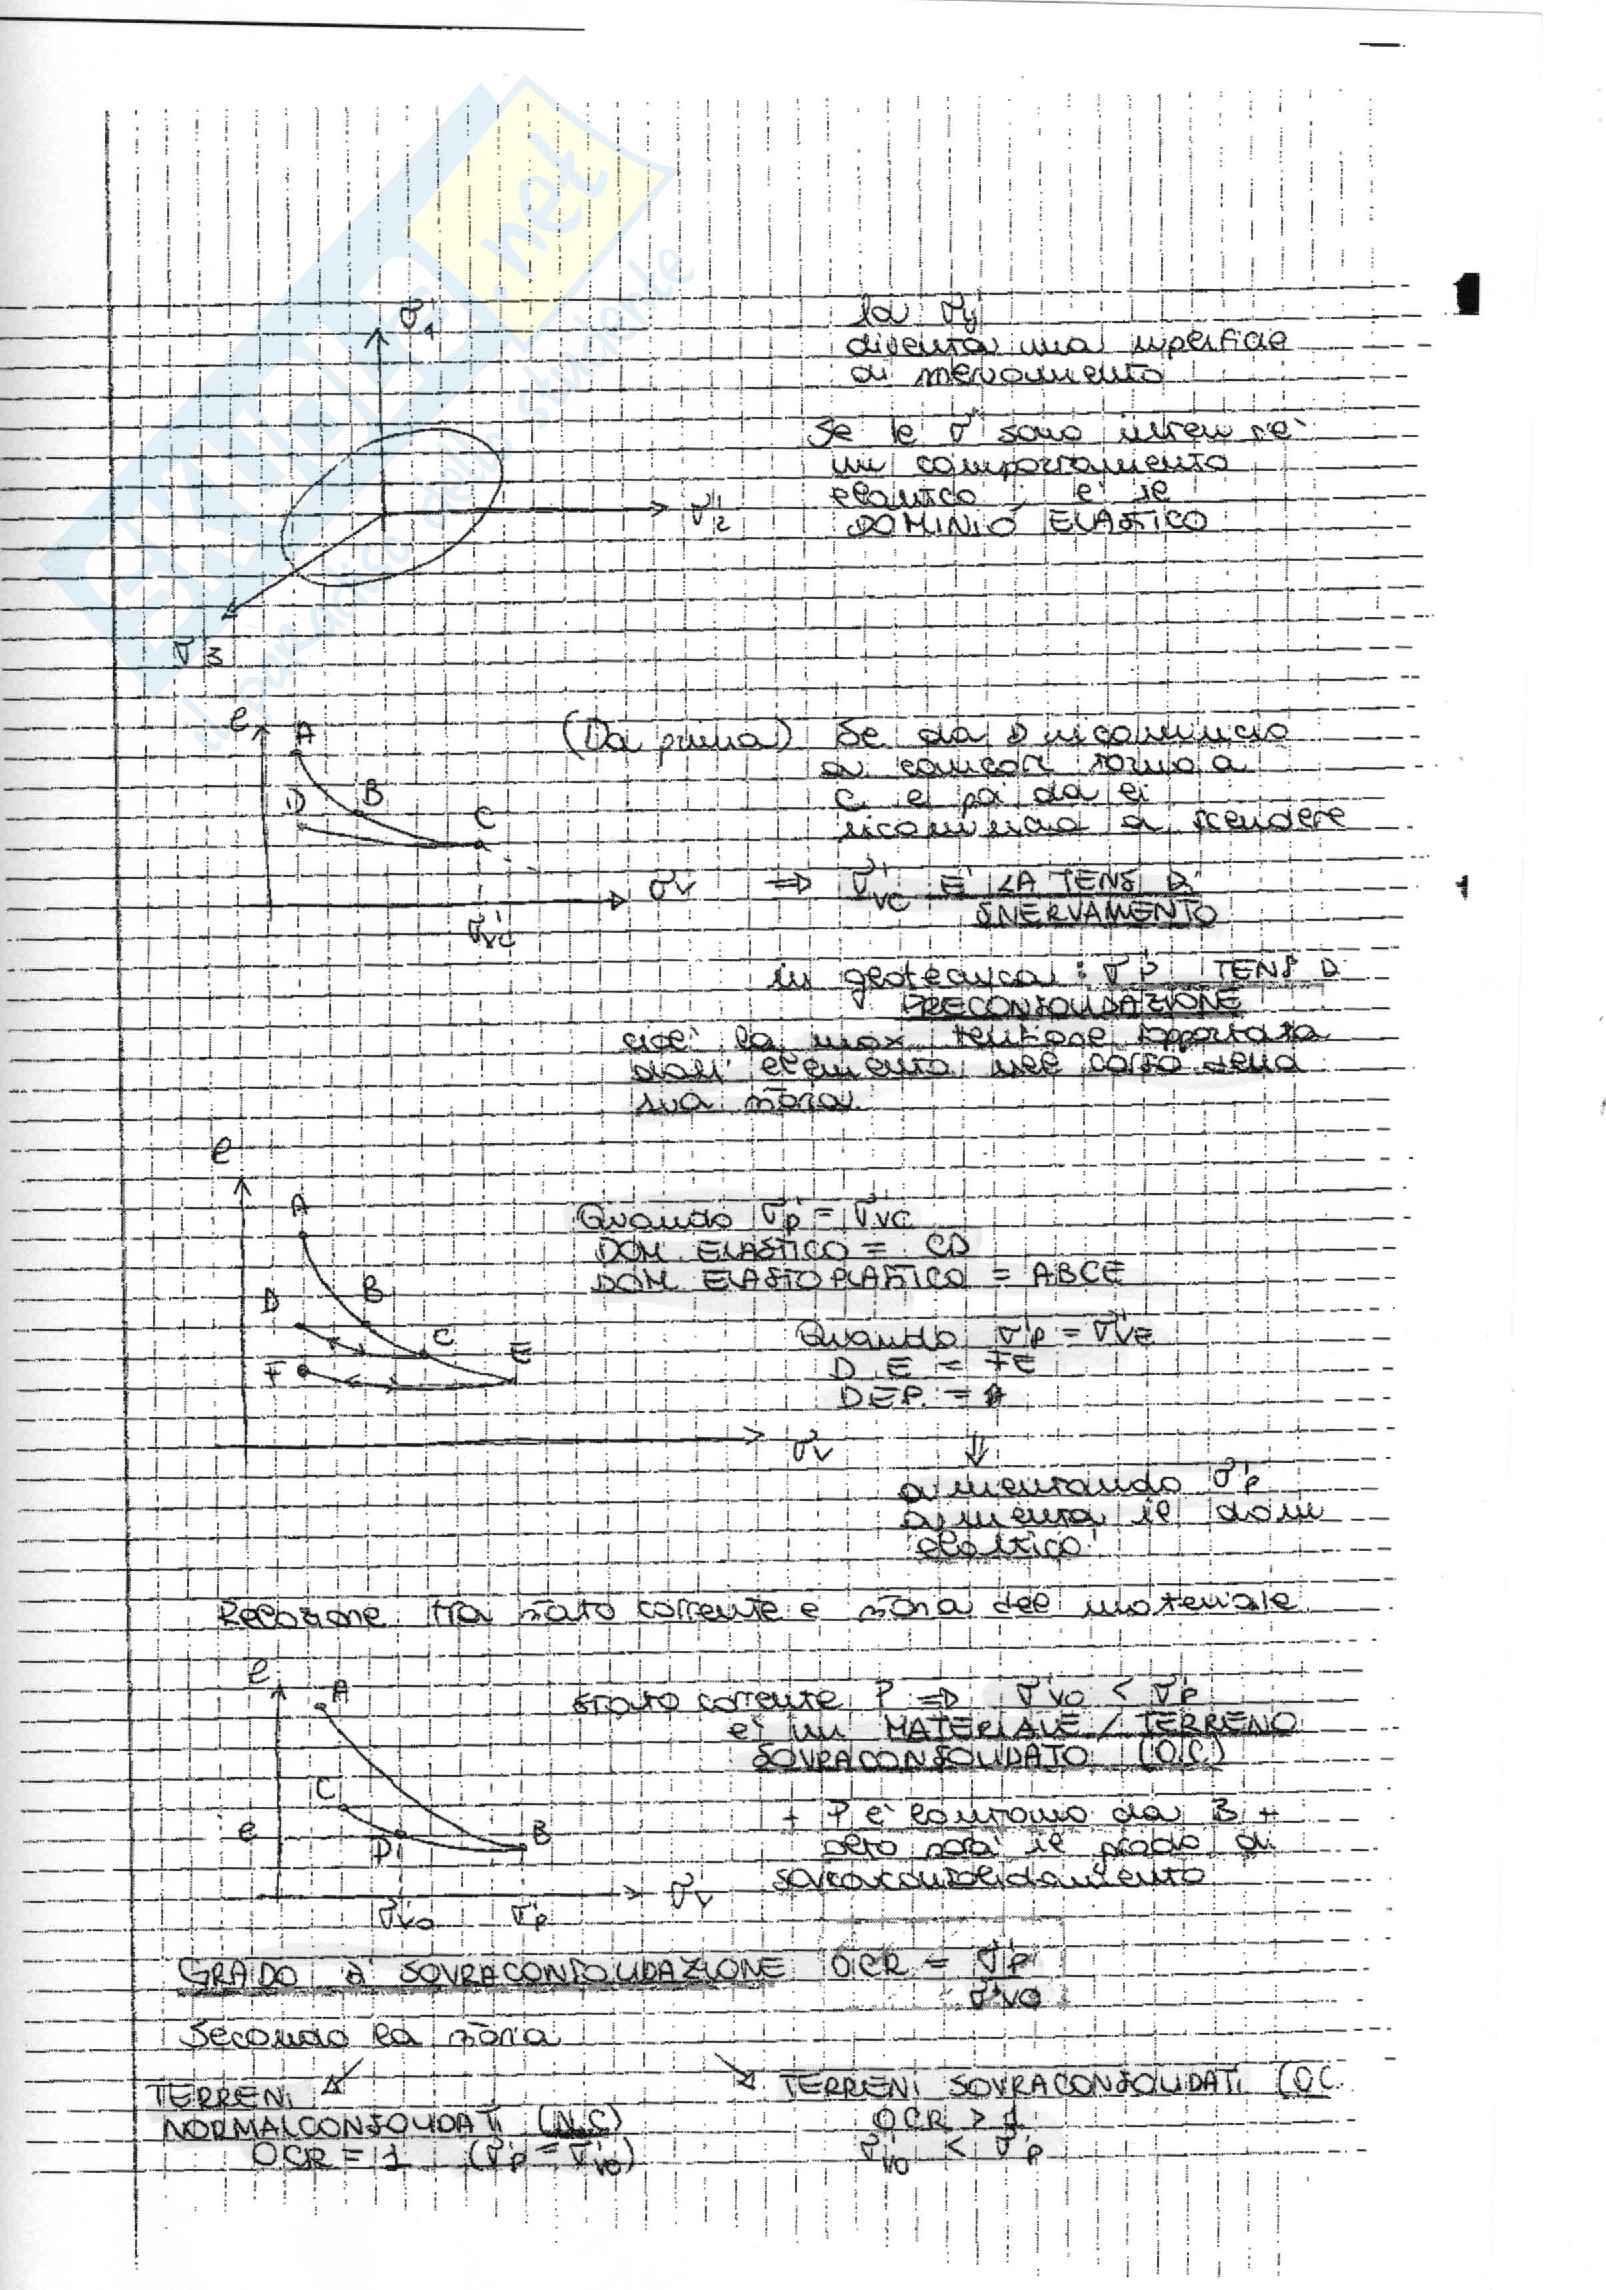 σ'1
la σy
diventa una superficie
di snervamento
Se le σ' sono interne c'è
un comportamento
elastico, è il
DOMINIO ELASTICO
σ'2
σ'3
e
A
D
B
C
σ'v
σ'vc
(Da prima) Se da D ricomincio
a caricare torno a
C e poi da lì
ricomincio a scendere
=> σ'vc E' LA TENS DI
SNERVAMENTO
in geotecnica: σ'p TENS DI
PRECONSOLIDAZIONE
cioè la max tensione sopportata
dall'elemento nel corso della
sua storia
e
A
B
D
C
E
F
σ'v
Quando σ'p = σ'vc
DOM. ELASTICO = CD
DOM. ELASTOPLASTICO = ABCE
Quando σ'p = σ'vE
D.E = FE
DEP. =
⇓
aumentando σ'p
aumenta il dom
elastico
Relazione tra stato corrente e storia del materiale
e
A
C
e
D
B
σ'v
σ'vo
σ'p
stato corrente P => σ'vo < σ'p
è un MATERIALE / TERRENO
SOVRACONSOLIDATO (O.C)
+ P è lontano da B +
alto sarà il grado di
sovraconsolidamento
GRADO DI SOVRACONSOLIDAZIONE OCR = σ'p
σ'vo
Secondo la storia
TERRENI
NORMALCONSOLIDATI (N.C)
OCR = 1 (σ'p = σ'vo)
TERRENI SOVRACONSOLIDATI (OC.
OCR > 1
σ'vo < σ'p
SKUOLA.net
il paradiso dello studente